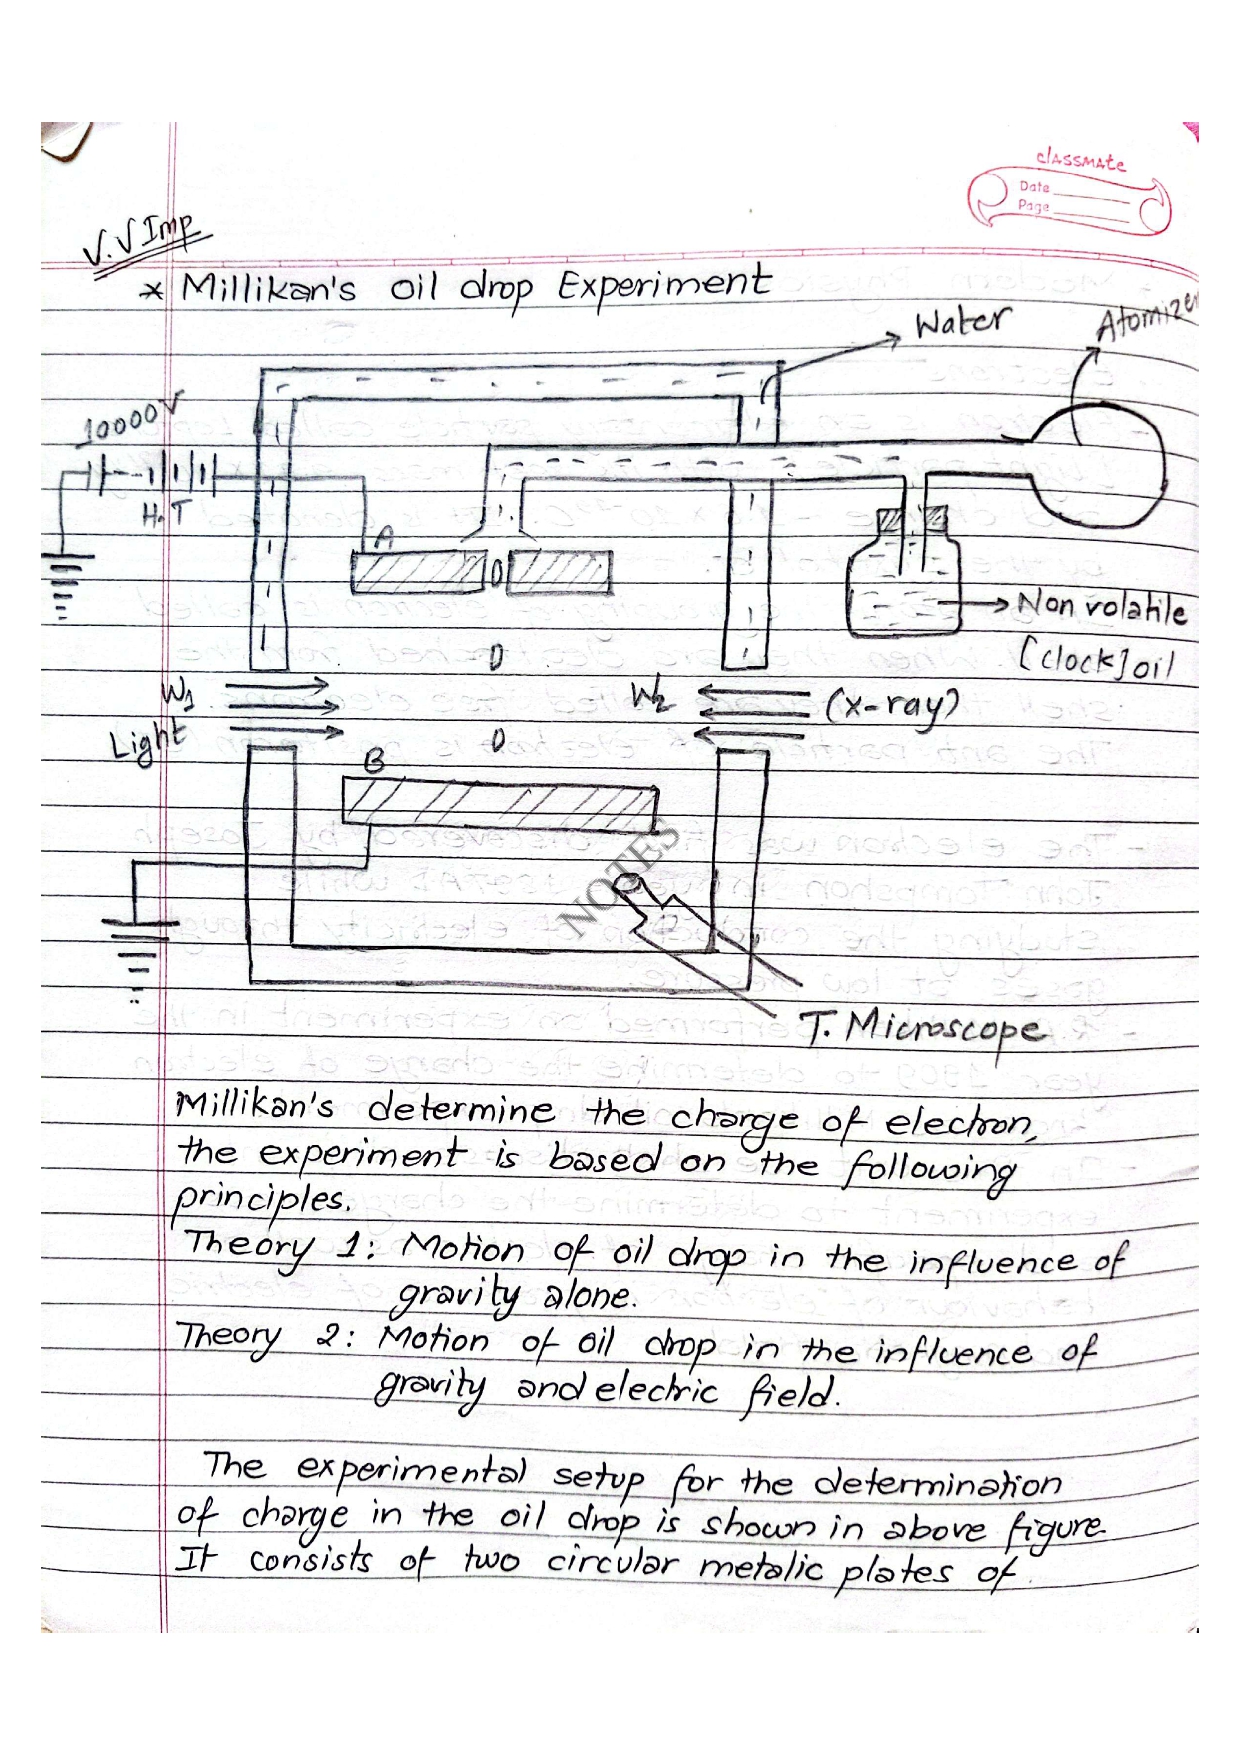 classmate
Date
Page
V.V Imp
* Millikan's oil drop Experiment
Water
Atomizer
10000V
H.T
A
Non volatile
[clock] oil
W1
W2
(x-ray)
Light
B
NOTES
T. Microscope
Millikan's determine the charge of electron,
the experiment is based on the following
principles.
Theory 1: Motion of oil drop in the influence of
gravity alone.
Theory 2: Motion of oil drop in the influence of
gravity and electric field.
The experimental setup for the determination
of charge in the oil drop is shown in above figure.
It consists of two circular metalic plates of